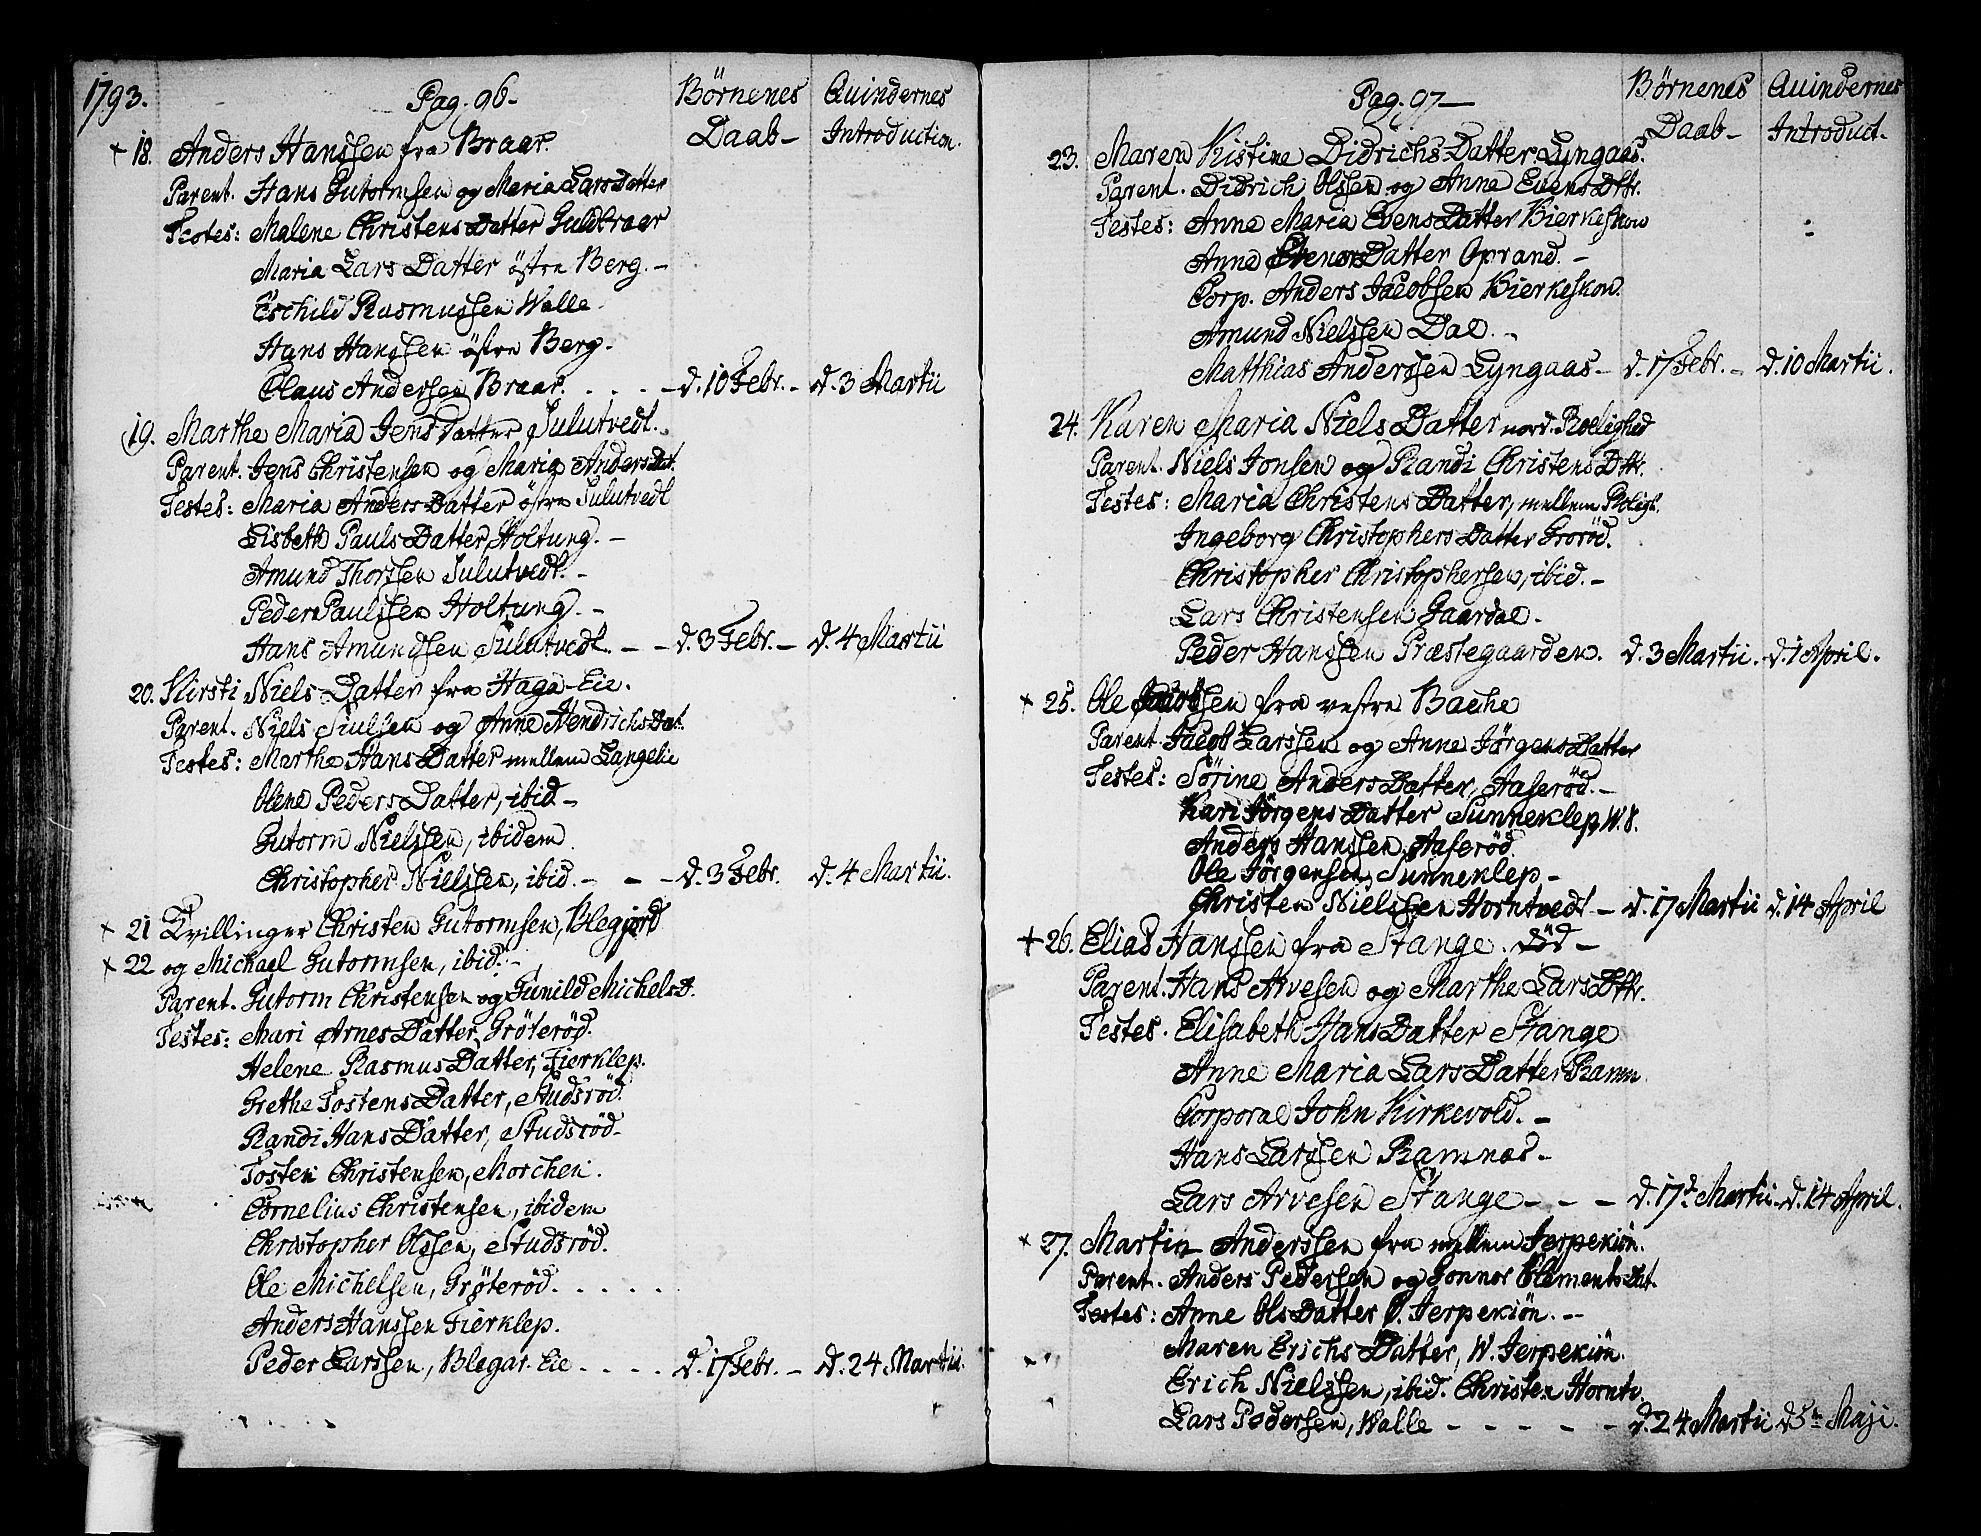 1793.
Pag. 96-
Börnenes Daab-
Quindernes Introduction.
+ 18. Anders Hanssen fra Braar.
Parent. Hans Gutormsen og Maria Lars Datter
Testes: Malene Christens Datter Guldbraar
Maria Lars Datter östre Berg. -
Eschild Rasmussen Walle
Hans Hanssen östre Berg. -
Claus Andersen Braar. . . . - d. 10 Febr. - d. 3 Martii
19. Marthe Maria Jens Datter Sulutvedt.
Parent. Jens Christensen og Maria Anders Dat.
Testes: Maria Anders Datter östre Sulutvedt
Lisbeth Pauls Datter, Holtung. -
Amund Thorssen Sulutvedt. -
Peder Paulssen Holtung. -
Hans Amundsen Sulutvedt. - - d. 3 Febr. - d. 4 Martii
20. Kirsti Niels Datter fra Haga-Eie.
Parent. Niels Siulsen og Anne Hendrichs Dat.
Testes: Marthe Hans Datter mellem Langelie
Olene Peders Datter, ibid -
Gutorm Nielssen, ibidem
Christopher Nielssen, ibid. - - - d. 3 Febr. d. 4 Martii.
+ 21 Tvillinger Christen Gutormsen, Blegjord
+ 22 og Michael Gutormsen, ibid. -
Parent. Gutorm Christensen og Gunild Michels D.
Testes: Mari Arnes Datter, Gröteröd.
Helene Rasmus Datter, Fierklep.
Grethe Tostens Datter, Studsröd.
Randi Hans Datter, Studsröd-
Tosten Christensen, Morchen.
Cornelius Christensen, ibidem
Christopher Olssen, Studsröd.
Ole Michelsen, Gröteröd. . . . . .
Anders Hanssen Fierklep.
Peder Larssen, Blegar. Eie . . . . d. 17 Febr. - d. 24 Martii.
Pag. 97 -
Börnenes Daab-
Quindernes Introduct.
23. Maren Kistine Didrichs Datter Lyngaas.
Parent. Didrich Olssen og Anne Evens Dttr.
Testes: Anne Maria Evens Datter Bierkeskow
Anne Datter Oprand. -
Corp. Anders Jacobsen Bierkeskow.
Amund Nielssen Dal. -
Matthias Anderssen Lyngaas- d. 17 Febr. - d. 10 Martii.
24. Karen Maria Niels Datter nord. Roelighed
Parent. Niels Jonsen og Randi Christens Dttr.
Testes: Maria Christens Datter, mellem Roligh.
Ingeborg Christophers Datter Groröd.
Christopher Christophersen, ibid. -
Lars Christensen Gaardal. -
Peder Hanssen Præstegaarden. d. 3 Martii. d. 1 April.
+ 25. Ole Jacobsen fra vestre Bache
Parent. Jacob Larssen og Anne Jörgens Datter
Testes: Sörine Anders Datter, Aaseröd. -
Kari Jörgens Datter Sunneklep W. 8.
Anders Hanssen, Aaseröd.
Ole Jörgensen, Sunneklep -
Christen Nielssen Horntvedt - d. 17 Martii d. 14 April
+ 26. Elias Hanssen fra Stange. död -
Parent. Hans Arvesen og Marthe Lars Dttr.
Testes. Elisabeth Hans Datter Stange
Anne Maria Lars Datter Ramn.
Corporal John Kirkevold. -
Hans Larssen Ramnas -
Lars Arvesen Stange - - - d. 17d Martii - d. 14 April.
+ 27. Martin Anderssen fra mellem Jerpekiön.
Parent. Anders Pedersen og Gonnor Clements Dat.
Testes: Anne Ols Datter Ö. Jerpekiön. --
Maren Erichs Datter, W. Jerpekiön.
Erich Nielssen, ibid. Christen Horntv.
Lars Pedersen, Walle - - - - - d. 24 Martii d 5te Maji.